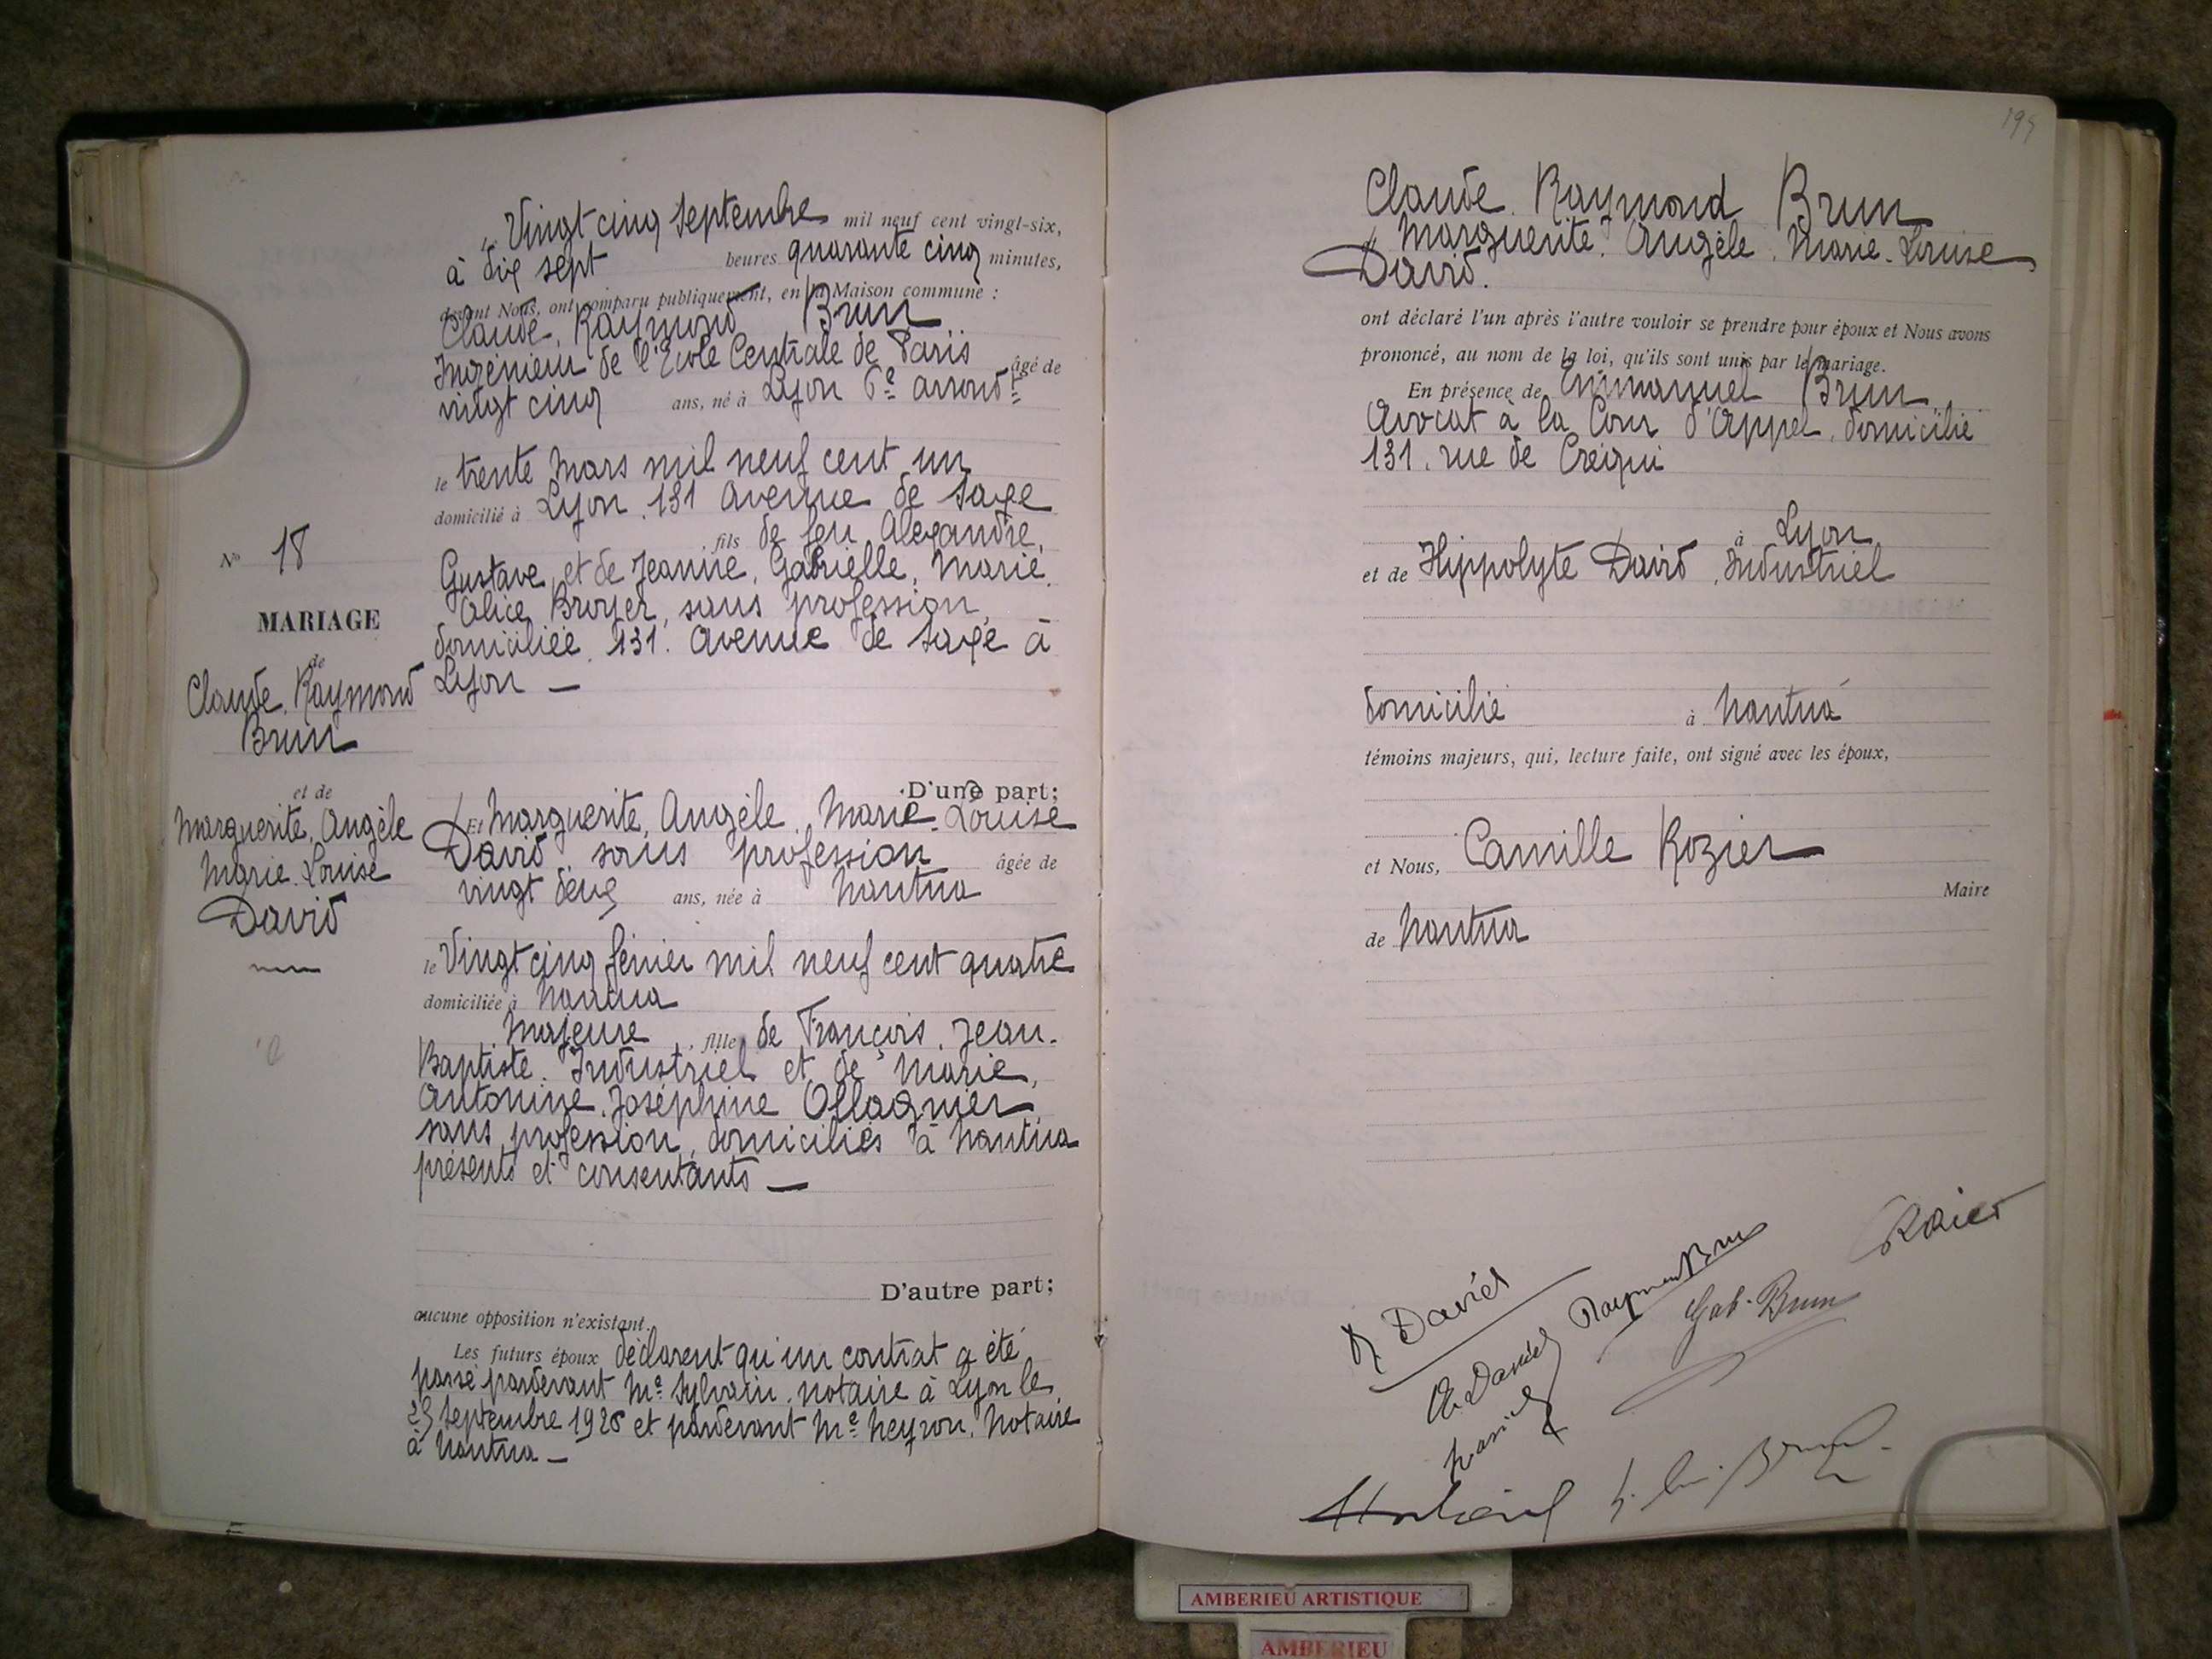 N° 18
MARIAGE
de
Claude, Raymond
Brun
et de
Marguerite, Angèle
Marie-Louise
David
Le Vingt cinq Septembre mil neuf cent vingt-six,
à dix sept heures quarante cinq minutes,
devant Nous, ont comparu publiquement, en la Maison commune :
Claude, Raymond Brun
Ingénieur de l'Ecole Centrale de Paris âgé de
vingt cinq ans, né à Lyon 6e arrondt
le trente Mars mil neuf cent un
domicilié à Lyon, 131 Avenue de Saxe
, fils de feu Alexandre,
Gustave, et de Jeanne, Gabrielle, Marie,
Alice Broyer, sans profession,
domiciliée, 131. Avenue de Saxe à
Lyon —
D'une part;
Et Marguerite, Angèle, Marie-Louise
David, sans profession âgée de
vingt deux ans, née à Nantua
le Vingt cinq février mil neuf cent quatre
domiciliée à Nantua
Majeure, fille de François, Jean-
Baptiste, Industriel et de Marie,
Antonine, Joséphine Ollagnier,
sans profession, domiciliés à Nantua
présents et consentants —
D'autre part;
aucune opposition n'existant.
Les futurs époux déclarent qu'un contrat a été
passé pardevant Me Sylvain, notaire à Lyon le
Septembre 1926 et pardevant Me Neyron, Notaire
à Nantua —
Claude, Raymond Brun
Marguerite, Angèle, Marie-Louise
David.
ont déclaré l'un après l'autre vouloir se prendre pour époux et Nous avons
prononcé, au nom de la loi, qu'ils sont unis par le mariage.
En présence de Emmanuel Brun
Avocat à la Cour d'Appel, domicilié
131, rue de Créqui
à Lyon
et de Hippolyte David, Industriel
domicilié à Nantua
témoins majeurs, qui, lecture faite, ont signé avec les époux,
et Nous, Camille Rozier
Maire
de Nantua
David
Raymond Brun
Rozier
Gab. Brun
David
Brun
AMBERIEU ARTISTIQUE
AMBERIEU